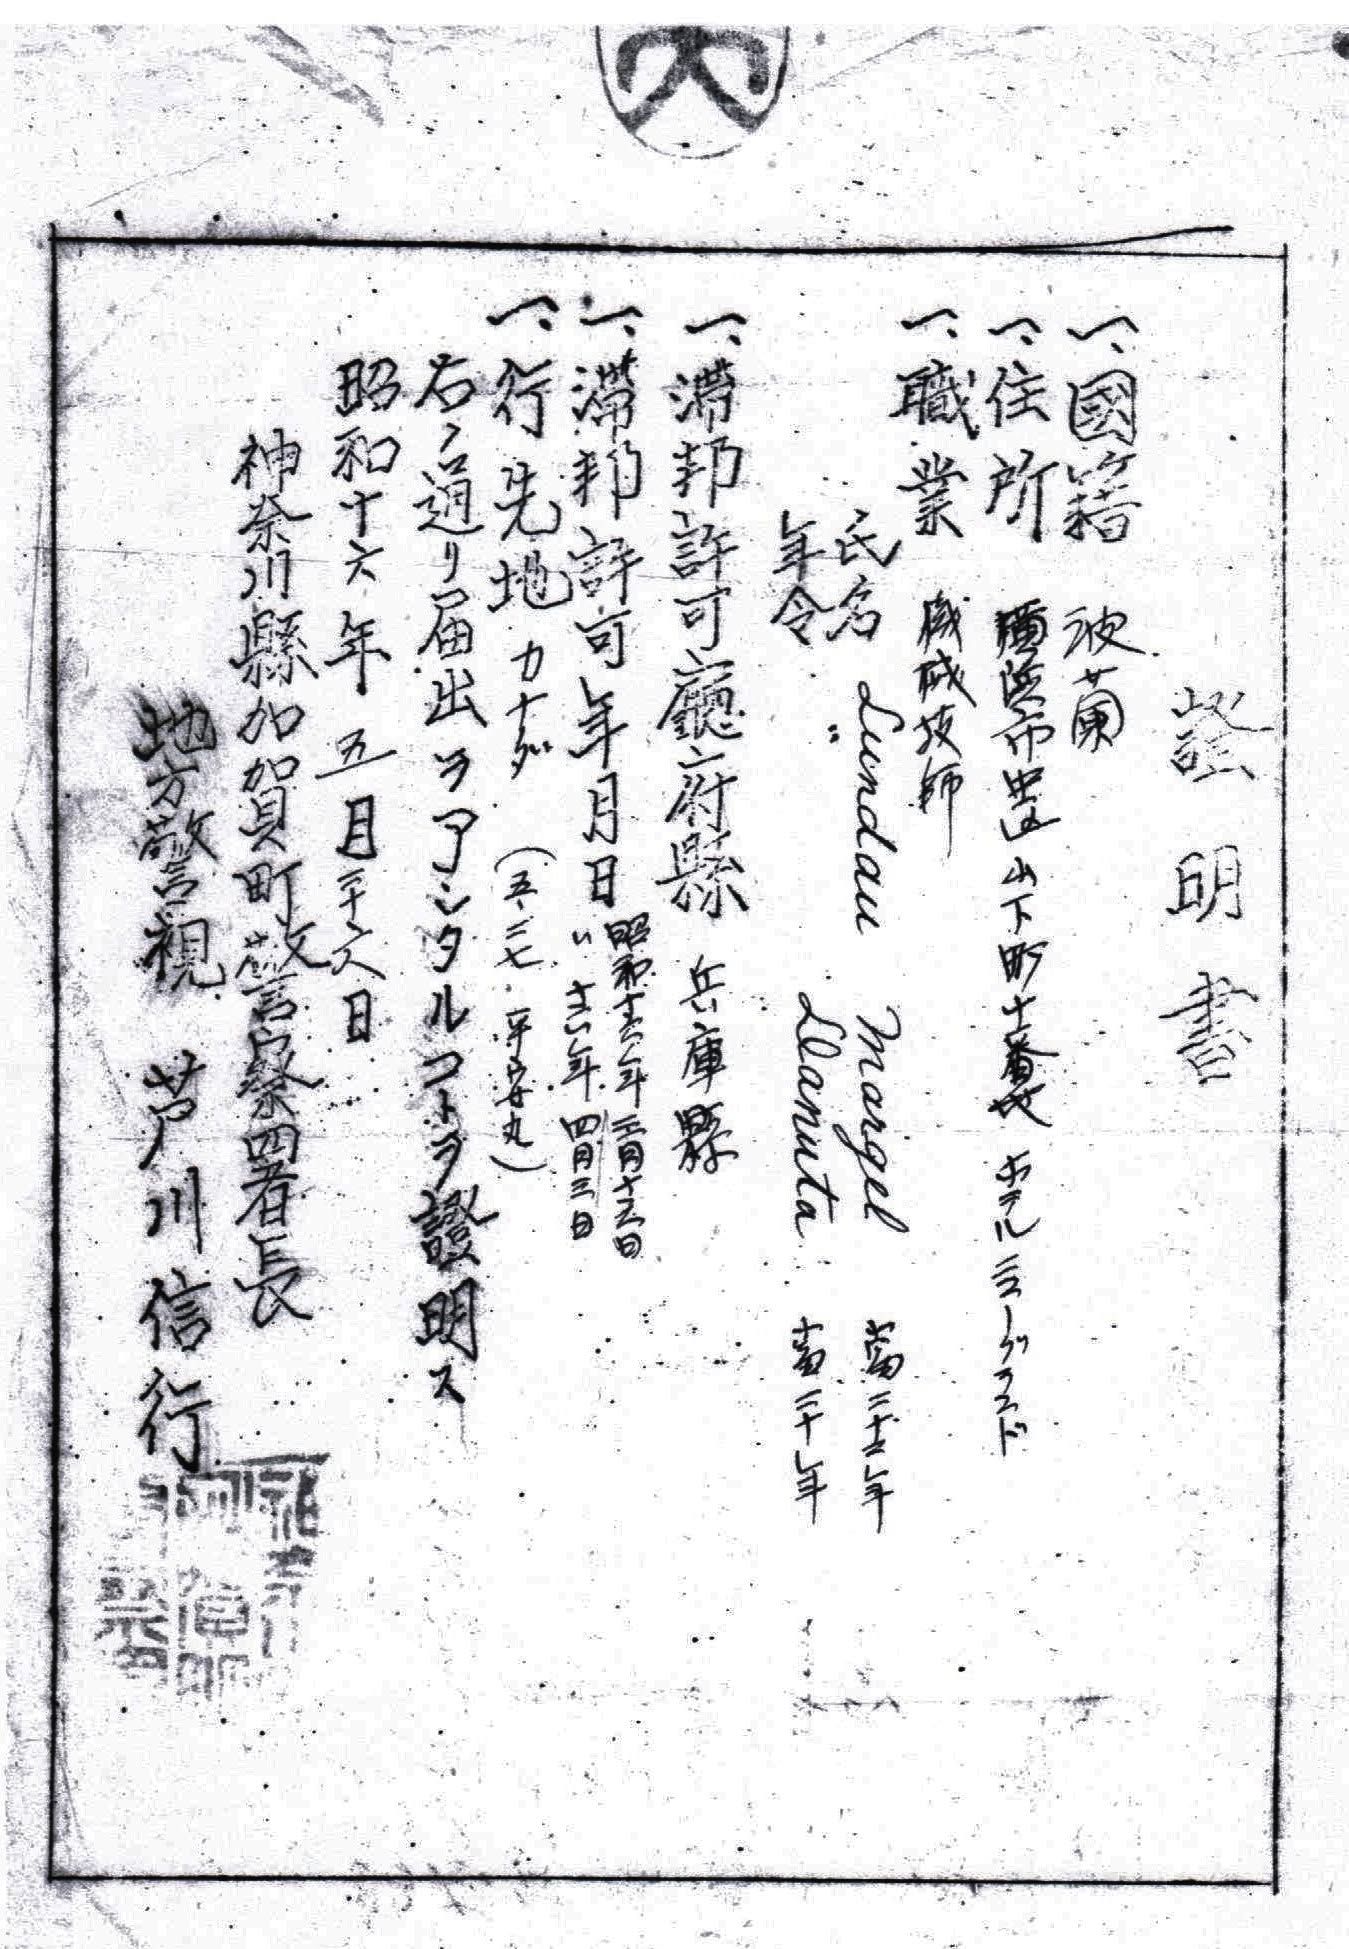 證明書
一、國籍 波蘭
一、住所 横浜市中区山下町十番地 ホテルニューグランド
一、職業 機械技師
氏名 Lundau Margel 当三十三年
年令 〃 Danuta 当三十年
一、滞邦許可廳府縣 兵庫縣
一、滞邦許可年月日 昭和十六年三月十六日
〃 十六年四月三日
一、行先地 カナダ (五、二七 平安丸)
右ノ通リ届出ヲアシタルコトヲ證明ス
昭和十六年五月二十六日
神奈川縣加賀町警察署長
地方警視 芦川信行